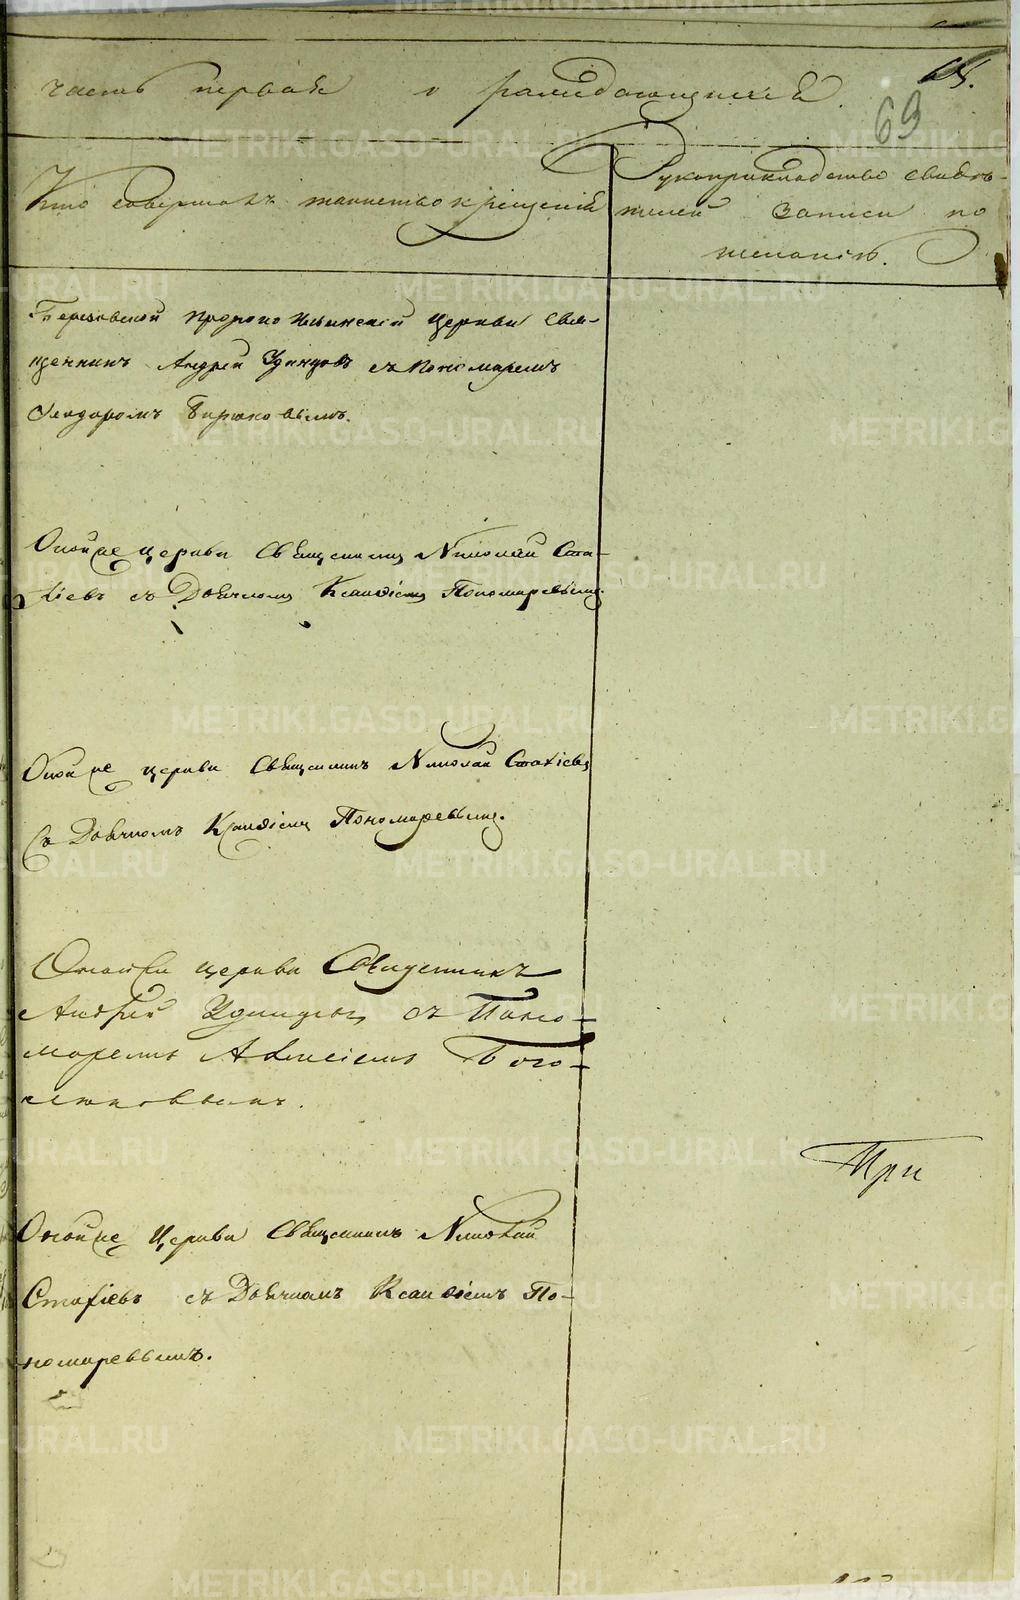 часть первая о рождающихся.
69
Кто совершалъ таинство крещенія
Рукоприкладство свидѣ-
телей записи по
желанію.
Березовской Пророко Ильинской Церкви Свя-
щенникъ Андрей Удинцовъ съ Пономаремъ
Феодоромъ Бирюковымъ.
Оной же церкви Священникъ Николай Ста-
хіевъ съ Дьячкомъ Клавдіемъ Пономаревымъ.
Оной же церкви Священникъ Николай Стахіевъ
Съ Дьячкомъ Клавдіемъ Пономаревымъ.
Оной церкви Священникъ
Андрей Удинцовъ съ Поно-
маремъ Алексіемъ Бого-
При
Оной же Церкви Священникъ Николай
Стахіевъ съ Дьячкомъ Клавдіемъ По-
номаревымъ.
METRIKI.GASO-URAL.RU